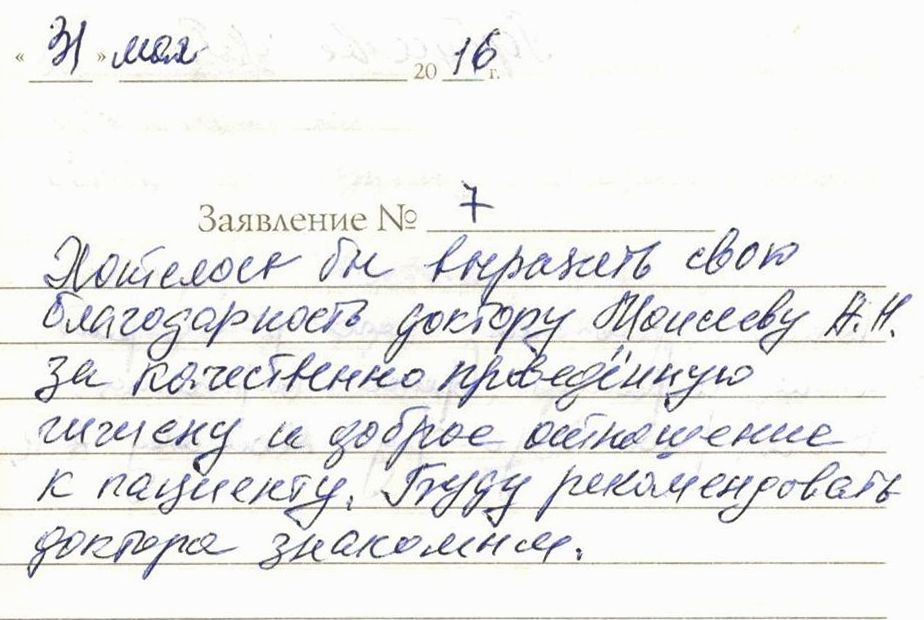 « 31 » мая 2016 г.
Заявление № 7
Хотелось бы выразить свою
благодарность доктору Моисееву А.Н.
за качественно проведённую
гигиену и доброе отношение
к пациенту. Буду рекомендовать
доктора знакомым.